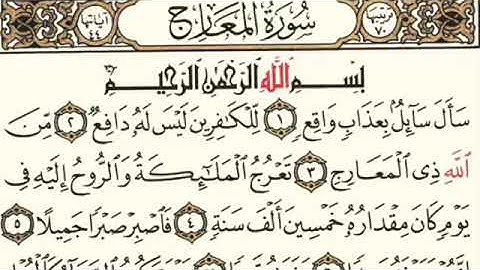 ترتيبها ٧٠
سُورَةُ المَعَارِجِ
آياتها ٤٤
بِسْمِ اللَّهِ الرَّحْمَٰنِ الرَّحِيمِ
سَأَلَ سَآئِلُۢ بِعَذَابٍ وَاقِعٍ ١ لِّلْكَافِرِينَ لَيْسَ لَهُۥ دَافِعٌ ٢ مِّنَ
ٱللَّهِ ذِى ٱلْمَعَارِجِ ٣ تَعْرُجُ ٱلْمَلَٰٓئِكَةُ وَٱلرُّوحُ إِلَيْهِ فِى
يَوْمٍ كَانَ مِقْدَارُهُۥ خَمْسِينَ أَلْفَ سَنَةٍ ٤ فَٱصْبِرْ صَبْرًا جَمِيلًا ٥